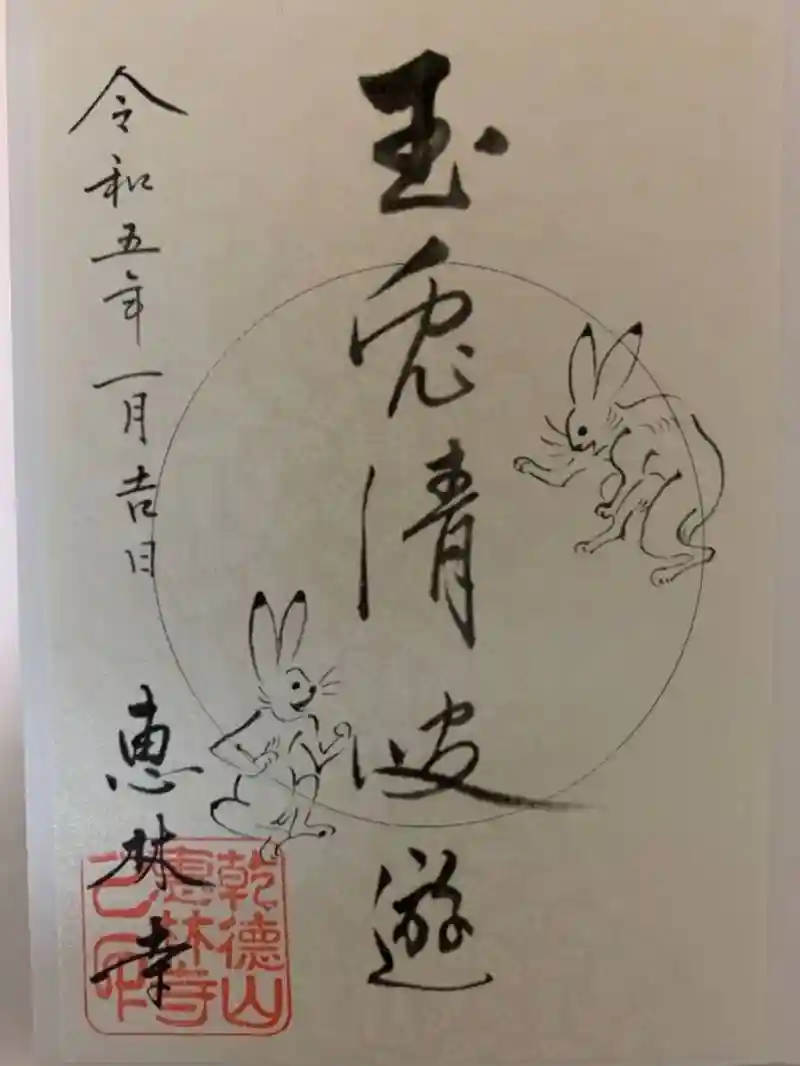 玉兎清波遊
令和五年一月吉日
恵林寺
乾徳山
恵林寺